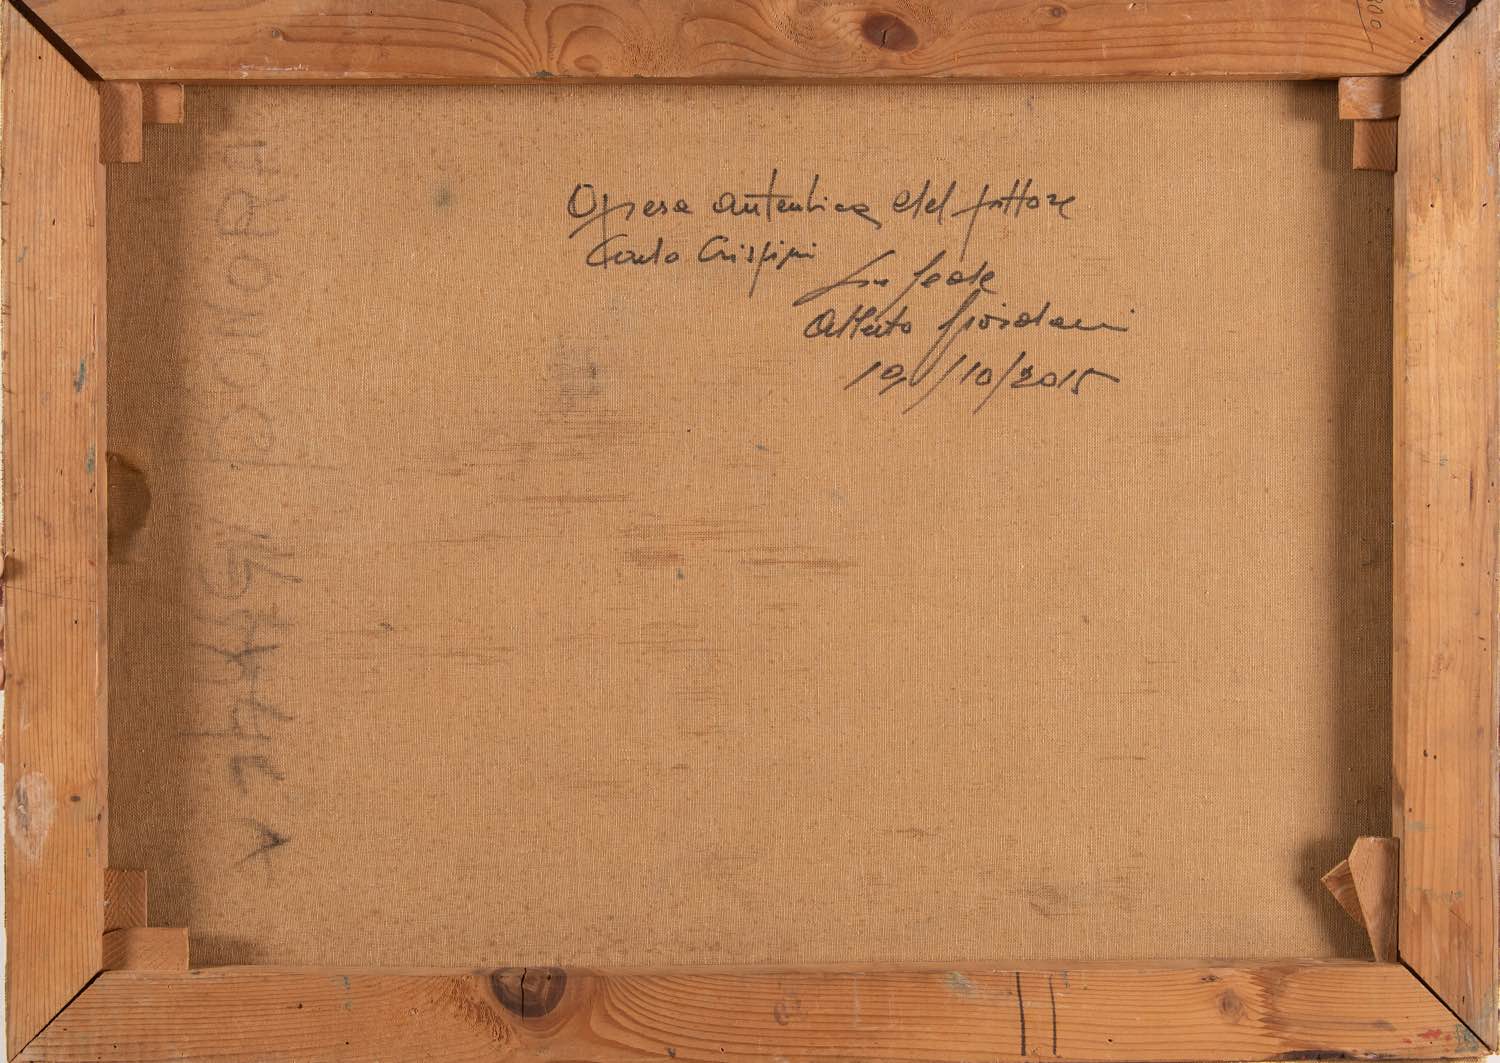 Opera autentica del pittore
Carlo Crispini
In fede
Alberto Giordani
19/10/2015
DONORA